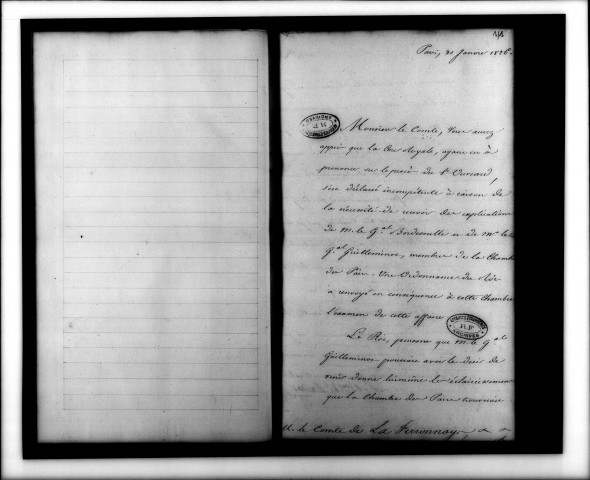 Paris, 31 Janvier 1826.
Monsieur le Comte, Vous aurez
appris que la Cour Royale, ayant eu à
prononcer sur le procès de Sr Ouvrard,
s'est déclarée incompétente à raison de
la nécessité de avoir des explications
de M. le Gal Bordesoulle et de Mr le
Gal Guilleminot, membres de la Chambre
des Pairs. Une Ordonnance du Roi
a renvoyé en conséquence à cette Chambre
l'examen de cette affaire
Le Roi, pensant que M. le Gal
Guilleminot pourrait avoir le désir de
venir donner lui même les éclaircissemens
que la Chambre des Pairs
M. le Comte de La Ferronnays
ARCHIVES